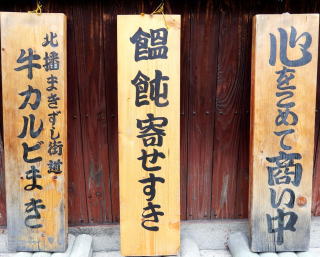 心をこめて商い中
饂飩寄せすき
北播まきずし街道
牛カルビまき